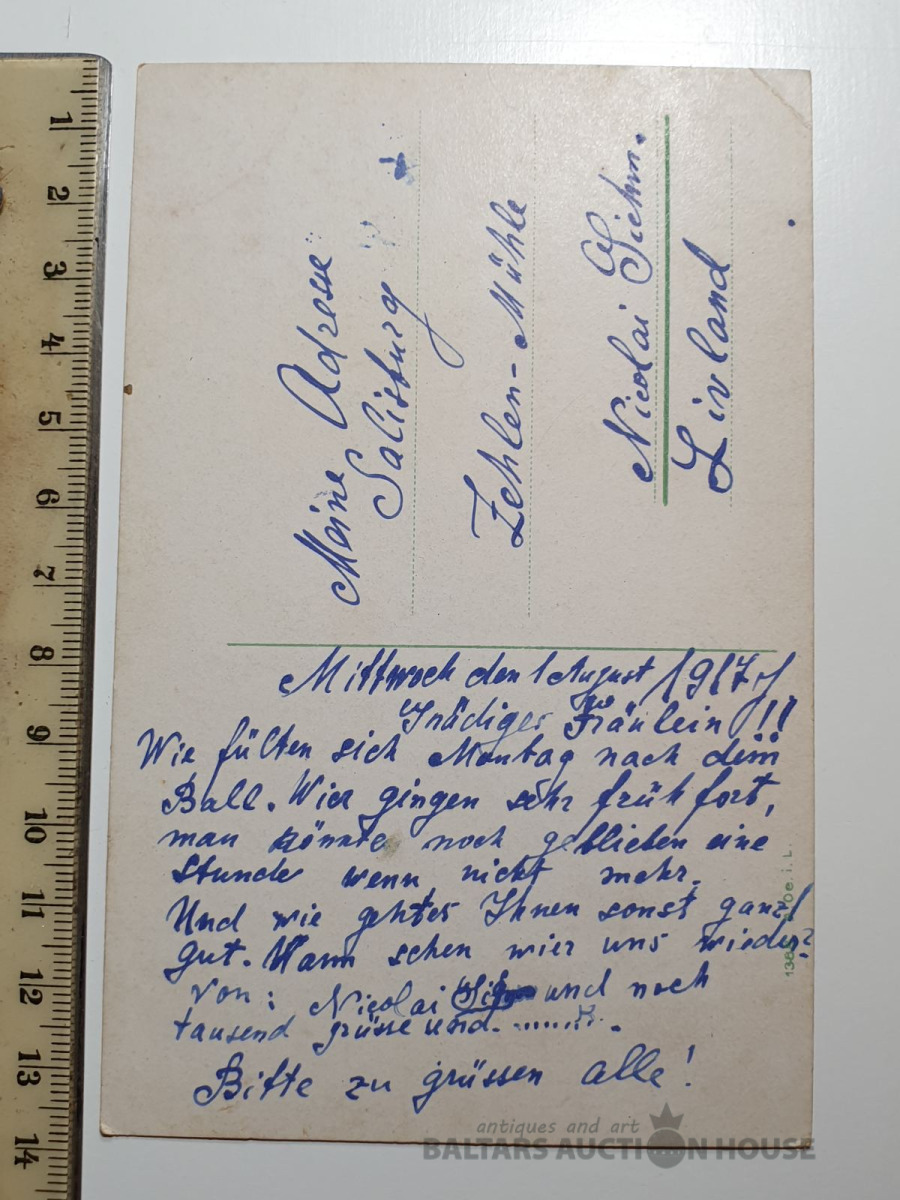 Meine Adresse
Salisburg
Zehlen-Mühle
Nicolai
Livland
Mittwoch den 1 August 1917 J
Gnädiges Fräulein !!
Wie fülten sich Montag nach dem
Ball. Wier gingen sehr früh fort,
man könnte noch geblieben eine
stunde wenn nicht mehr.
Und wie gehtes Ihnen sonst ganz
gut. Wann sehen wier uns wieder?
von: Nicolai und noch
tausend grüsse und.........
Bitte zu grüssen alle!
1 2 3 4 5 6 7 8 9 10 11 12 13 14
antiques and art
BALTARS AUCTION HOUSE